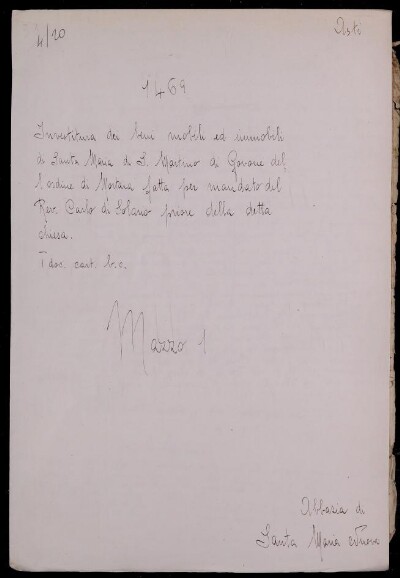 4/20
Asti
1469
Investitura dei beni mobili ed immobili
di Santa Maria di S. Martino di Govone del
l'ordine di Mortara fatta per mandato del
Rev. Carlo di Solano priore della detta
chiesa.
1 doc. cart. b.c.
Mazzo 1
Abbazia di
Santa Maria Nuova